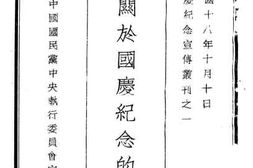 國十八年十月十日
慶紀念宣傳叢刊之一
關於國慶紀念的
中國國民黨中央執行委員會宣